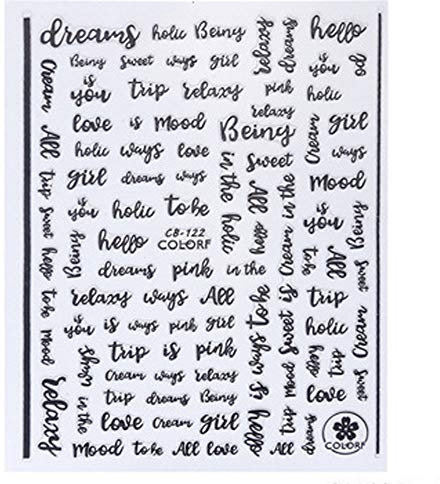 dreams holic Being relaxy dreams hello
Being Sweet ways girl is you do
Cream is you trip relaxy pink holic
relaxy
love is Mood Being Cream girl
All holic ways love in the holic Sweet ways
trip girl dreams ways All Mood
Sweet is you holic to be hello Cream in the is you Being
hello CB-122
COLORF
hello Being dreams pink in the to be All Sweet
to be relaxy ways All is ways to be Sweet is trip
Mood is you is ways pink girl holic Cream
relaxy in the trip is pink Mood hello trip
Cream ways relaxy love Sweet
trip dreams Being hello trip
love Cream girl dreams COLORF
Mood to be All love All